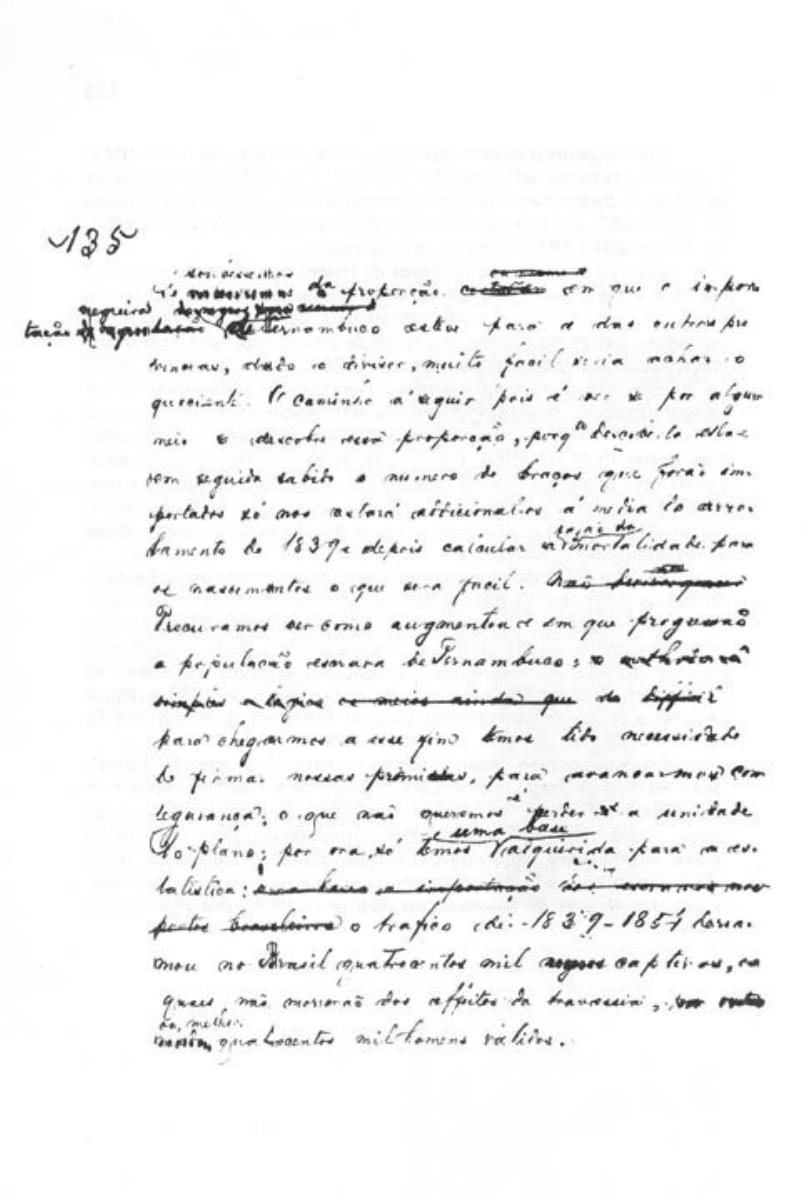 135
da proporção em que a impor
tação negreira de Pernambuco estava para a das outras pro
vincias, dado o divisor, muito facil seria achar o
quociente. O caminho a seguir pois é ver se por algum
meio se descobre essa proporção, porq descoberta esta e
em seguida sabido o numero de braços que forão im
portados só nos estará addicional-os á media do arro
lamento de 1839 e depois calcular a razão da mortalidade para
os nascimentos o que sera facil.
Procuramos ver como augmentou e em que progressão
a população escrava de Pernambuco;
para chegarmos a esse fim temos tido necessidade
de firmar nossas premissas, para avançarmos com
segurança; o que não queremos é perder a unidade
do plano; por ora, só temos uma base adquirida para a es
tatistica: o trafico de 1839-1851 derra
mou no Brasil quatrocentos mil captivos, os
quaes não morrerão dos effeitos da travessia,
ou, melhor, quatrocentos mil homens válidos.